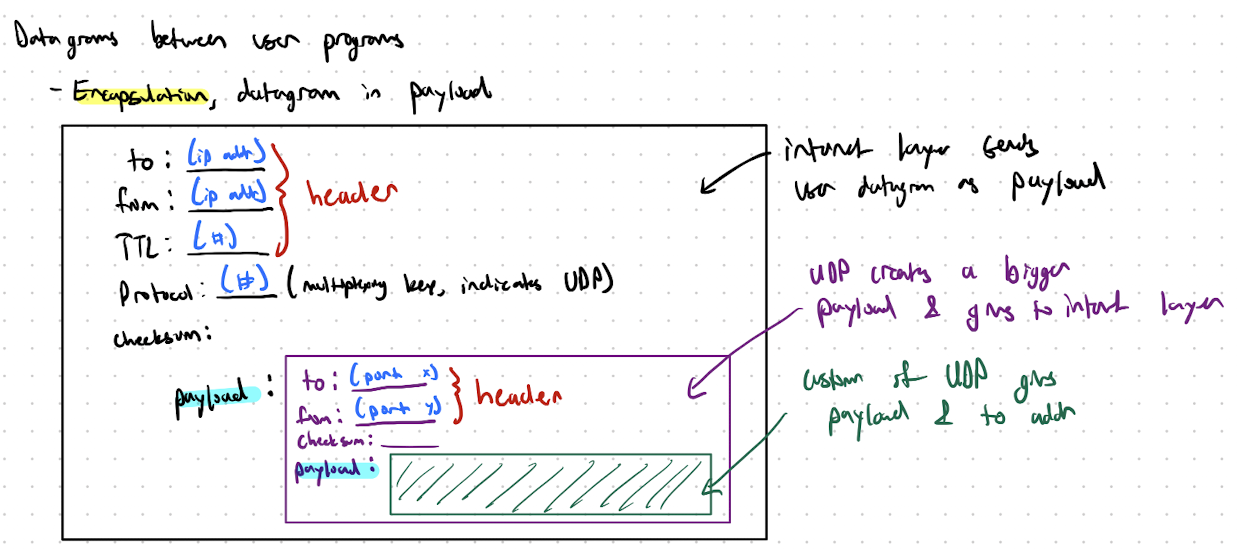 Datagrams between user programs
- Encapsulation, datagram in payload
to: (ip addr)
from: (ip addr)
header
TTL: (#)
Protocol: (#) (multiplexing key, indicates UDP)
checksum:
payload:
to: (port x)
from: (port y)
header
checksum:
payload:
internet layer sends
user datagram as payload
UDP creates a bigger
payload & gives to internet layer
custom of UDP gives
payload & to addr